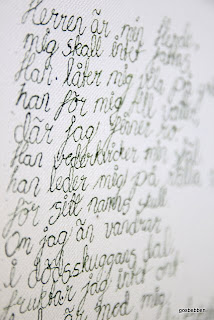 Herren är min Herde,
mig skall intet fattas
Han låter mig
han för mig till
där jag finner ro.
Han vederkvicker min själ
han leder mig på rätta
för sitt namns skull
Om jag än vandrar
i dödsskuggans dal
fruktar jag intet ont
är med mig
goebebben